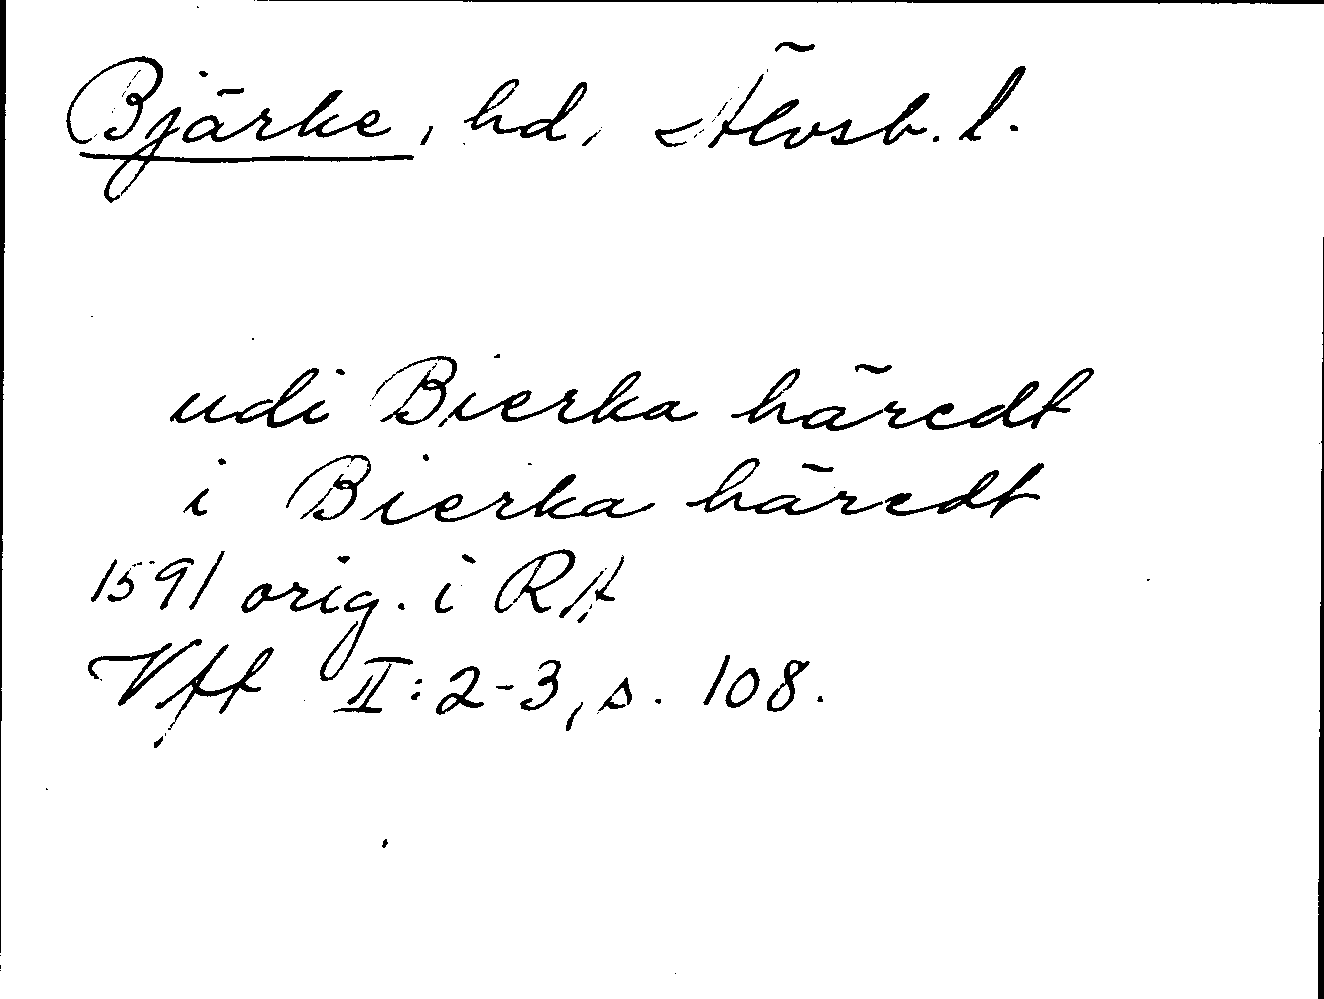 Bjärke, hd, Älvsb. l.
udi Bierka häredt
i Bierka häredt
1591 orig. i RA
Vff II:2-3, s. 108.